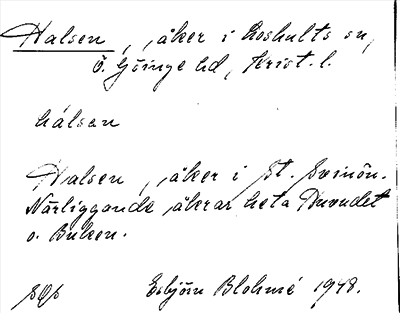 Halsen, åker i Loshults sn,
Ö. Göinge hd, Krist. l.
hálsen
Halsen, åker i St. Svinön.
Närliggande åkrar heta Huvudet
o. Buken.
Esbjörn Blohmé 1948.